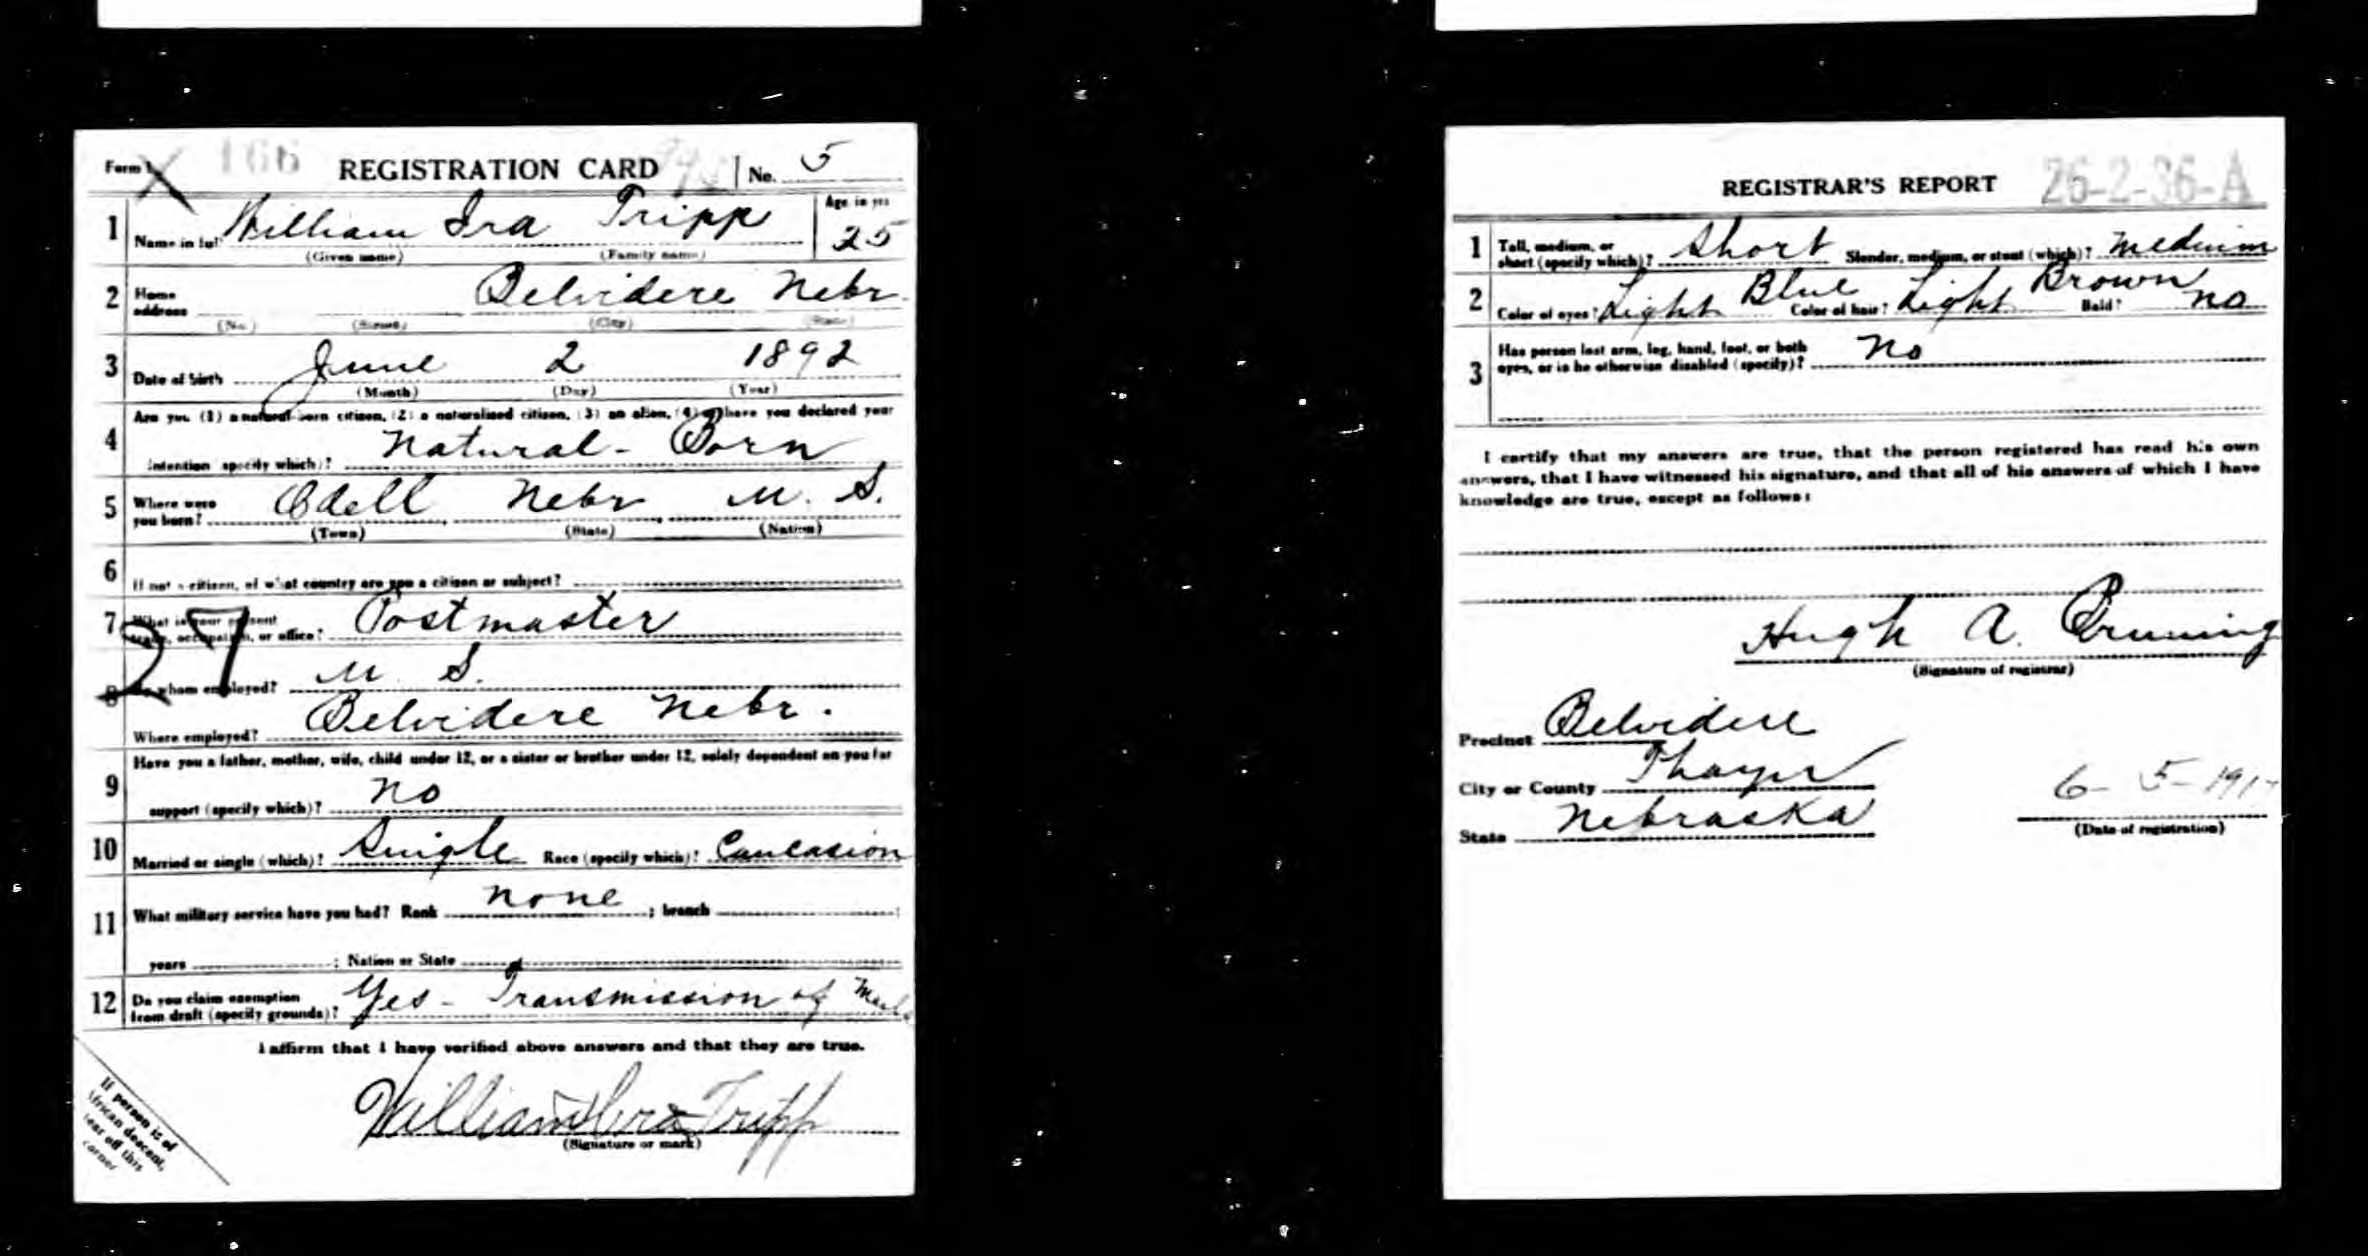 Form 1 166 REGISTRATION CARD No. 5
1 Name in full William Ira Tripp Age, in yrs 25
(Given name) (Family name)
2 Home address Belvidere Nebr.
(No.) (Street) (City) (State)
3 Date of birth June 2 1892
(Month) (Day) (Year)
4 Are you (1) a natural-born citizen, (2) a naturalized citizen, (3) an alien, (4) or have you declared your
intention (specify which)? Natural-Born
5 Where were you born? Odell Nebr U. S.
(Town) (State) (Nation)
6 If not a citizen, of what country are you a citizen or subject?
7 What is your present trade, occupation, or office? Postmaster
27
8 By whom employed? U. S.
Where employed? Belvidere Nebr.
9 Have you a father, mother, wife, child under 12, or a sister or brother under 12, solely dependent on you for
support (specify which)? No
10 Married or single (which)? Single Race (specify which)? Caucasion
11 What military service have you had? Rank None ; branch ;
years ; Nation or State
12 Do you claim exemption from draft (specify grounds)? Yes - Transmission of Mails
I affirm that I have verified above answers and that they are true.
William Ira Tripp
(Signature or mark)
If person is of
African descent,
tear off this
corner
REGISTRAR'S REPORT 26-2-36-A
1 Tall, medium, or short (specify which)? Short Slender, medium, or stout (which)? Medium
2 Color of eyes? Light Blue Color of hair? Light Brown Bald? No
3 Has person lost arm, leg, hand, foot, or both
eyes, or is he otherwise disabled (specify)? No
I certify that my answers are true, that the person registered has read his own
answers, that I have witnessed his signature, and that all of his answers of which I have
knowledge are true, except as follows:
Hugh A. Bruning
(Signature of registrar)
Precinct Belvidere
City or County Thayer
State Nebraska
6-5-1917
(Date of registration)